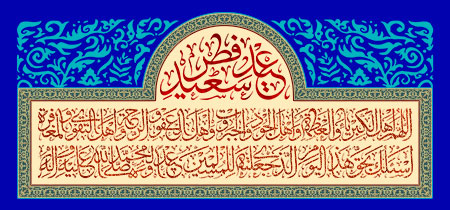 عید سعید فطر
اللهم اهل الكبرياء والعظمة واهل الجود والجبروت واهل العفو والرحمة واهل التقوى والمغفرة
اسئلك بحق هذا اليوم الذي جعلته للمسلمين عيدا ولمحمد صلى الله عليه وآله